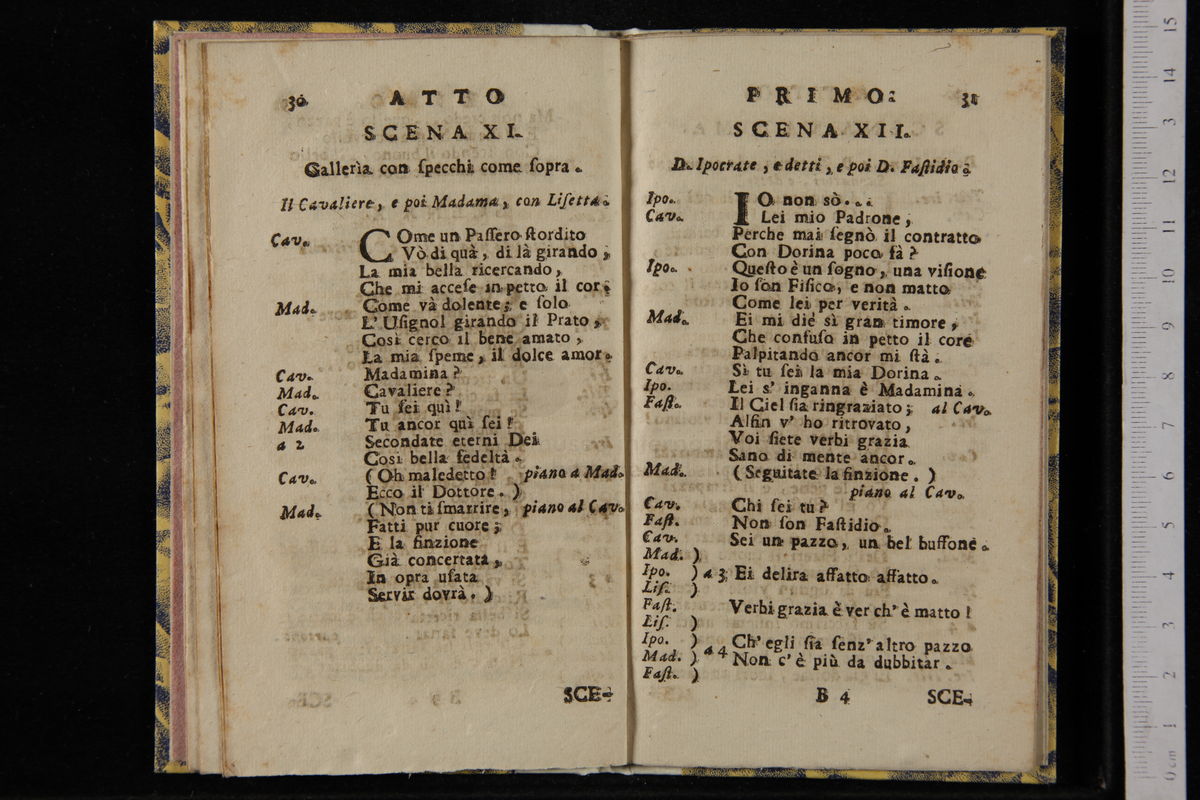 30 ATTO
SCENA XI.
Gallerìa con ſpecchi come ſopra.
Il Cavaliere, e poi Madama, con Liſetta.
Cav. COme un Paſſero ſtordito
Vò di quà, di là girando,
La mia bella ricercando,
Che mi acceſe in petto il cor.
Mad. Come và dolente, e ſolo
L' Uſignol girando il Prato,
Così cerco il bene amato,
La mia ſpeme, il dolce amor.
Cav. Madamina?
Mad. Cavaliere?
Cav. Tu ſei quì!
Mad. Tu ancor quì ſei!
a 2 Secondate eterni Dei
Così bella fedeltà.
Cav. (Oh maledetto! piano a Mad.
Ecco il Dottore.)
Mad. (Non ti ſmarrire, piano al Cav.
Fatti pur cuore;
E la finzione
Già concertata,
In opra uſata
Servir dovrà.)
SCE-
PRIMO. 31
SCENA XII.
D. Ipocrate, e detti, e poi D. Faſtidio.
Ipo. IO non sò...
Cav. Lei mio Padrone,
Perche mai ſegnò il contratto
Con Dorina poco fà?
Ipo. Queſto è un ſogno, una viſione
Io ſon Fiſico, e non matto
Come lei per verità.
Mad. Ei mi diè sì gran timore,
Che confuſo in petto il core
Palpitando ancor mi ſtà.
Cav. Sì tu ſei la mia Dorina.
Ipo. Lei s' inganna è Madamina.
Faſt. Il Ciel ſia ringraziato; al Cav.
Alfin v' ho ritrovato,
Voi ſiete verbi grazia
Sano di mente ancor.
Mad. (Seguitate la finzione.)
piano al Cav.
Cav. Chi ſei tu?
Faſt. Non ſon Faſtidio.
Cav. Sei un pazzo, un bel buffone.
Mad. )
Ipo. ) a 3 Ei delira affatto affatto.
Liſ. )
Faſt. Verbi grazia è ver ch' è matto!
Liſ. )
Ipo. ) Ch' egli ſia ſenz' altro pazzo
Mad. ) a 4 Non c' è più da dubbitar.
Faſt. )
B 4 SCE-
0 cm 1 2 3 4 5 6 7 8 9 10 11 12 13 14 15